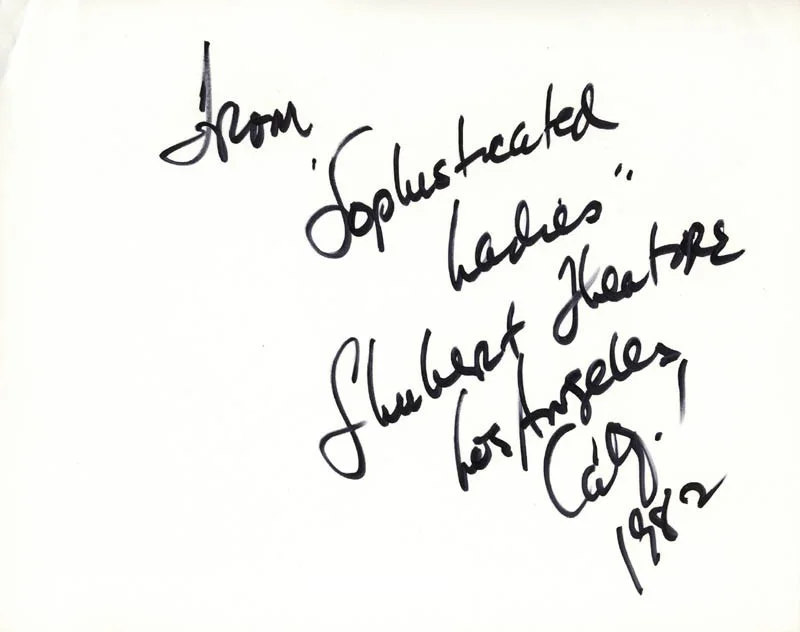 From
"Sophisticated
Ladies"
Shubert Theatre
Los Angeles,
Calif.
1982